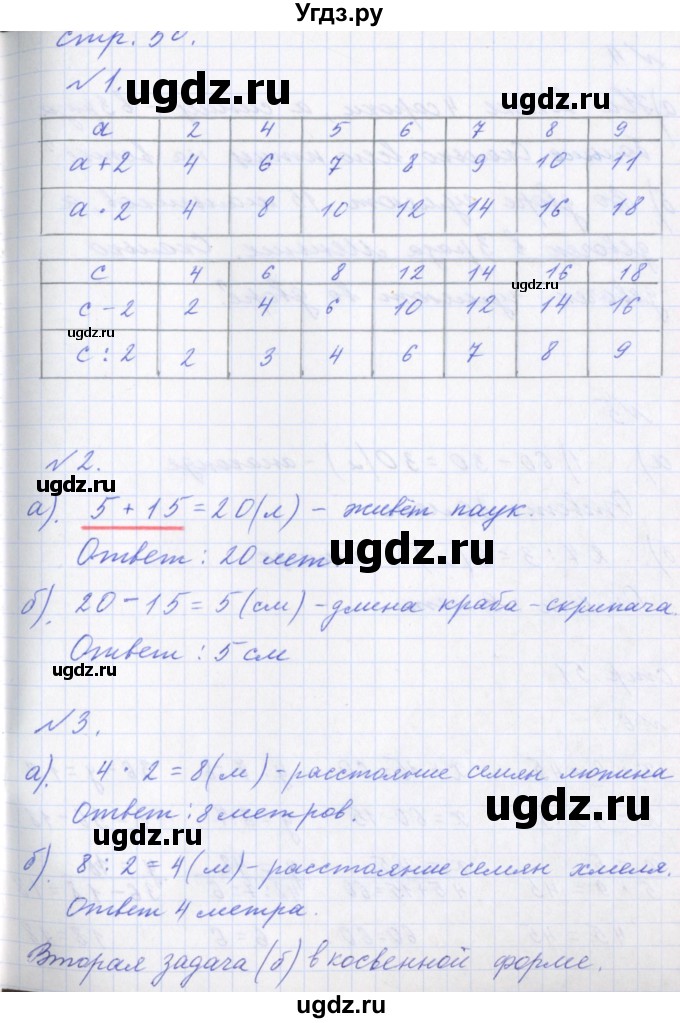 Угдз.ру
стр. 50.
№1.
a 2 4 5 6 7 8 9
a+2 4 6 7 8 9 10 11
a·2 4 8 10 12 14 16 18
c 4 6 8 12 14 16 18
c-2 2 4 6 10 12 14 16
c:2 2 3 4 6 7 8 9
№2.
а). 5+15=20(л) – живёт паук.
Ответ: 20 лет.
б). 20-15=5(см) -длина краба-скрипача.
Ответ: 5 см
№3.
а). 4·2=8(м) -расстояние семян люпина
Ответ: 8 метров.
б). 8:2=4(м)-расстояние семян хмеля.
Ответ 4 метра.
Вторая задача (б) в косвенной форме.
ugdz.ru
ugdz.ru
ugdz.ru
ugdz.ru
ugdz.ru
ugdz.ru
ugdz.ru
ugdz.ru
ugdz.ru
ugdz.ru
ugdz.ru
ugdz.ru
ugdz.ru